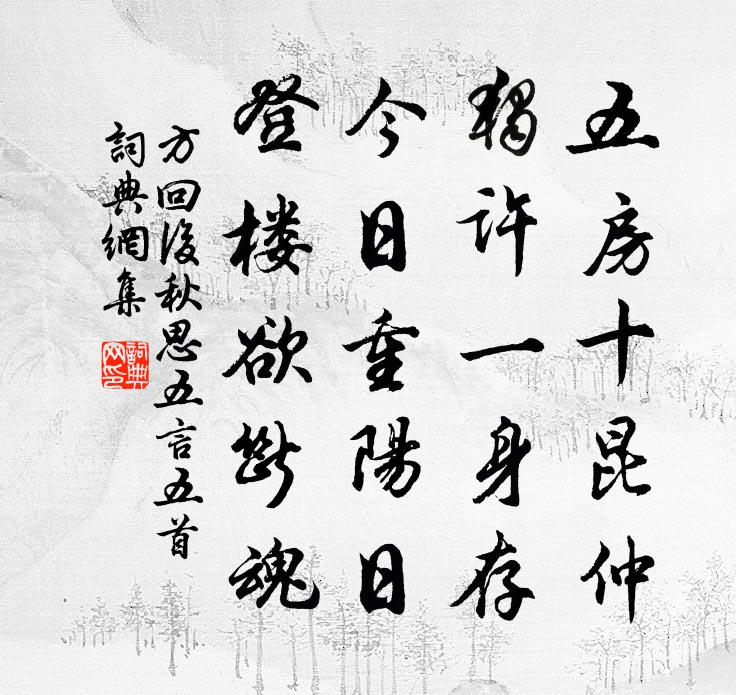 五房十昆仲
獨許一身存
今日重陽日
登楼欲断魂
方回後秋思五言五首
詞典網集
詞典网印